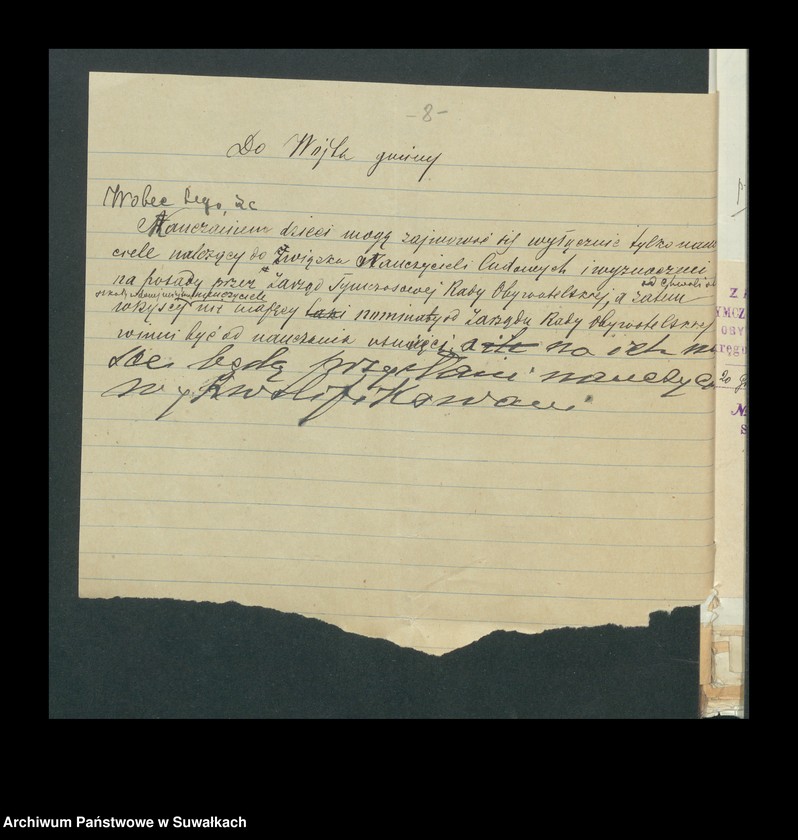 -8-
Do Wójta gminy
Wobec tego, że
Nauczaniem dzieci mogą zajmować się wyłącznie tylko nau
ciele należący do Związku Nauczycieli Ludowych i wyznaczeni
od chwili
na posady przez Zarząd Tymczasowej Rady Obywatelskiej, a zatem
nauczyciele
wszyscy nie mający nominacyj od Zarządu Rady Obywatelskiej
winni być od nauczania usunięci, a na ich m
sce będą przysłani nauczyc
wykwalifikowani
Z
YMCZ
OBY
kręg
20
S
Archiwum Państwowe w Suwałkach